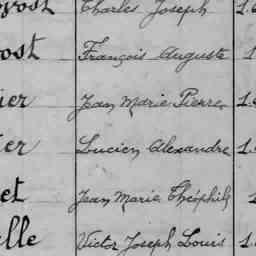 ovost Charles Joseph 1.
ost François Auguste 1
ier Jean Marie Pierre 1.
ier Lucien Alexandre 1.
et Jean Marie Théophile 1
elle Victor Joseph Louis 1.